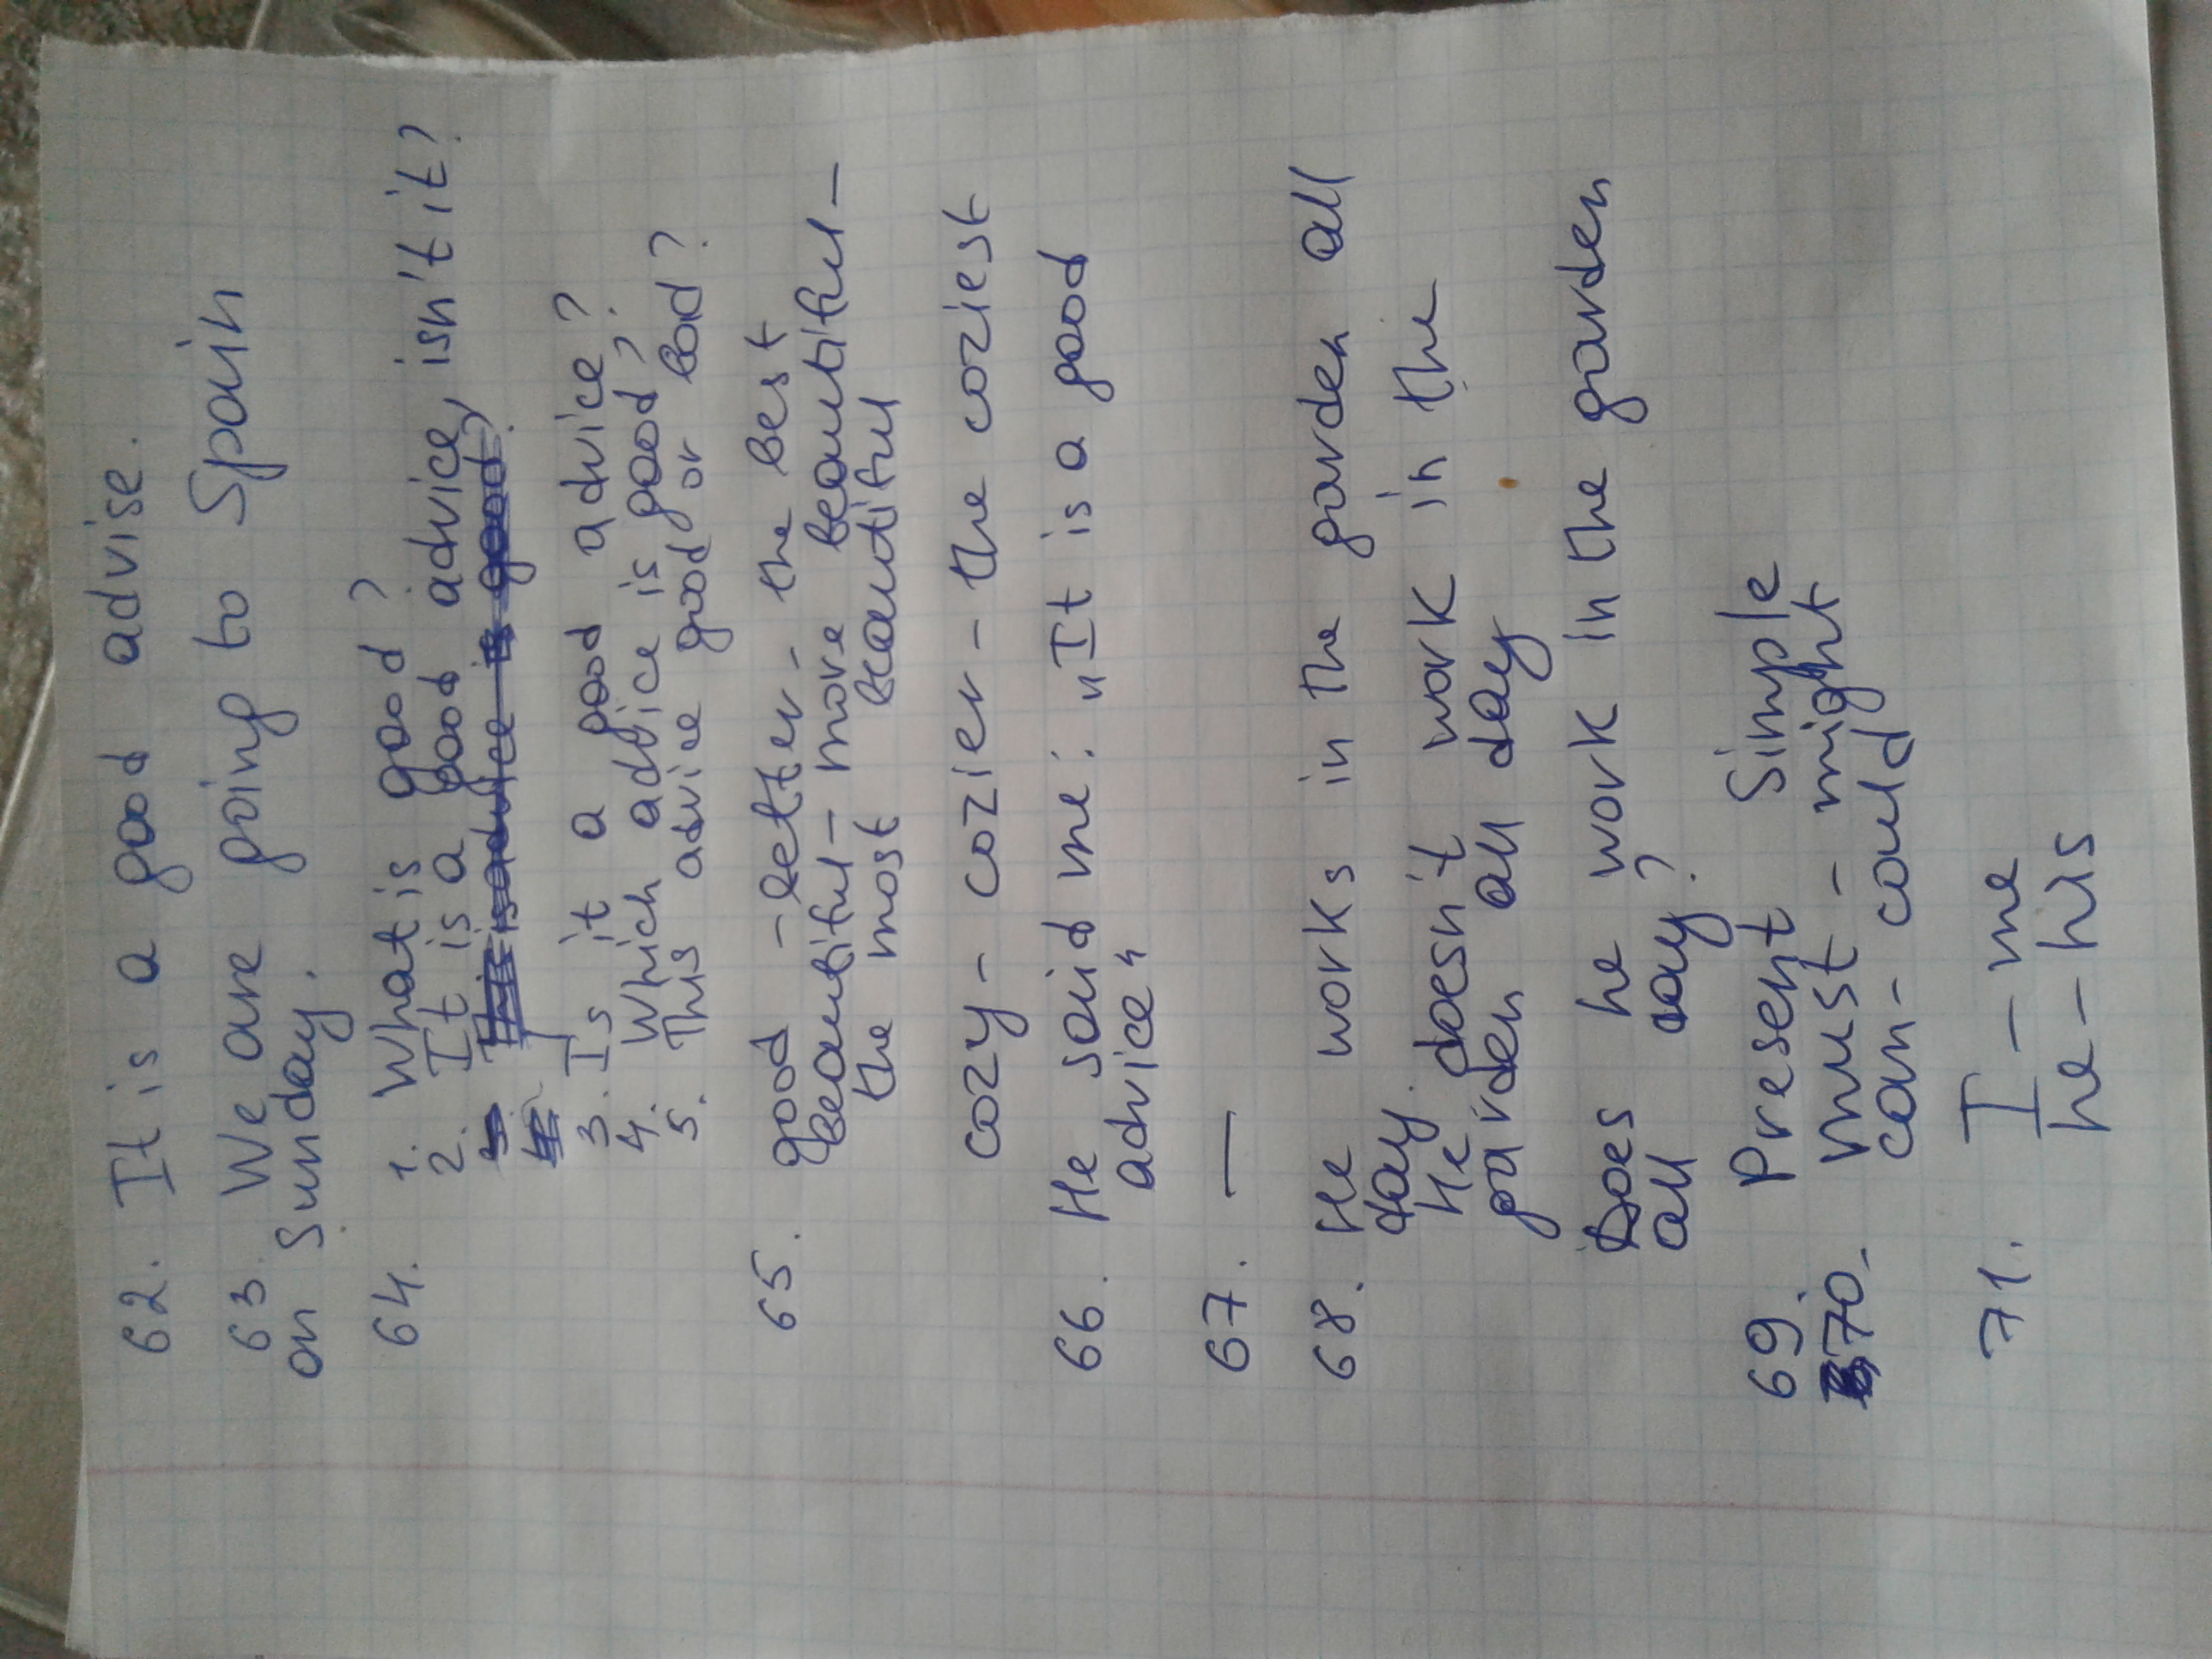 62. It is a good advise.
63. We are going to Spain
on Sunday.
64. 1. What is good?
2. It is a good advice, isn't it?
3. Is it a good advice?
4. Which advice is good?
5. This advice is good, good or bad?
65. good - better - the best
beautiful - more beautiful -
the most beautiful
cozy - cozier - the coziest
66. He said me: „It is a good
advice"
67. —
68. He works in the garden all
day.
He doesn't work in the
garden all day
Does he work in the garden
all day?
69. Present Simple
70. must - might
can - could
71. I - me
he - his